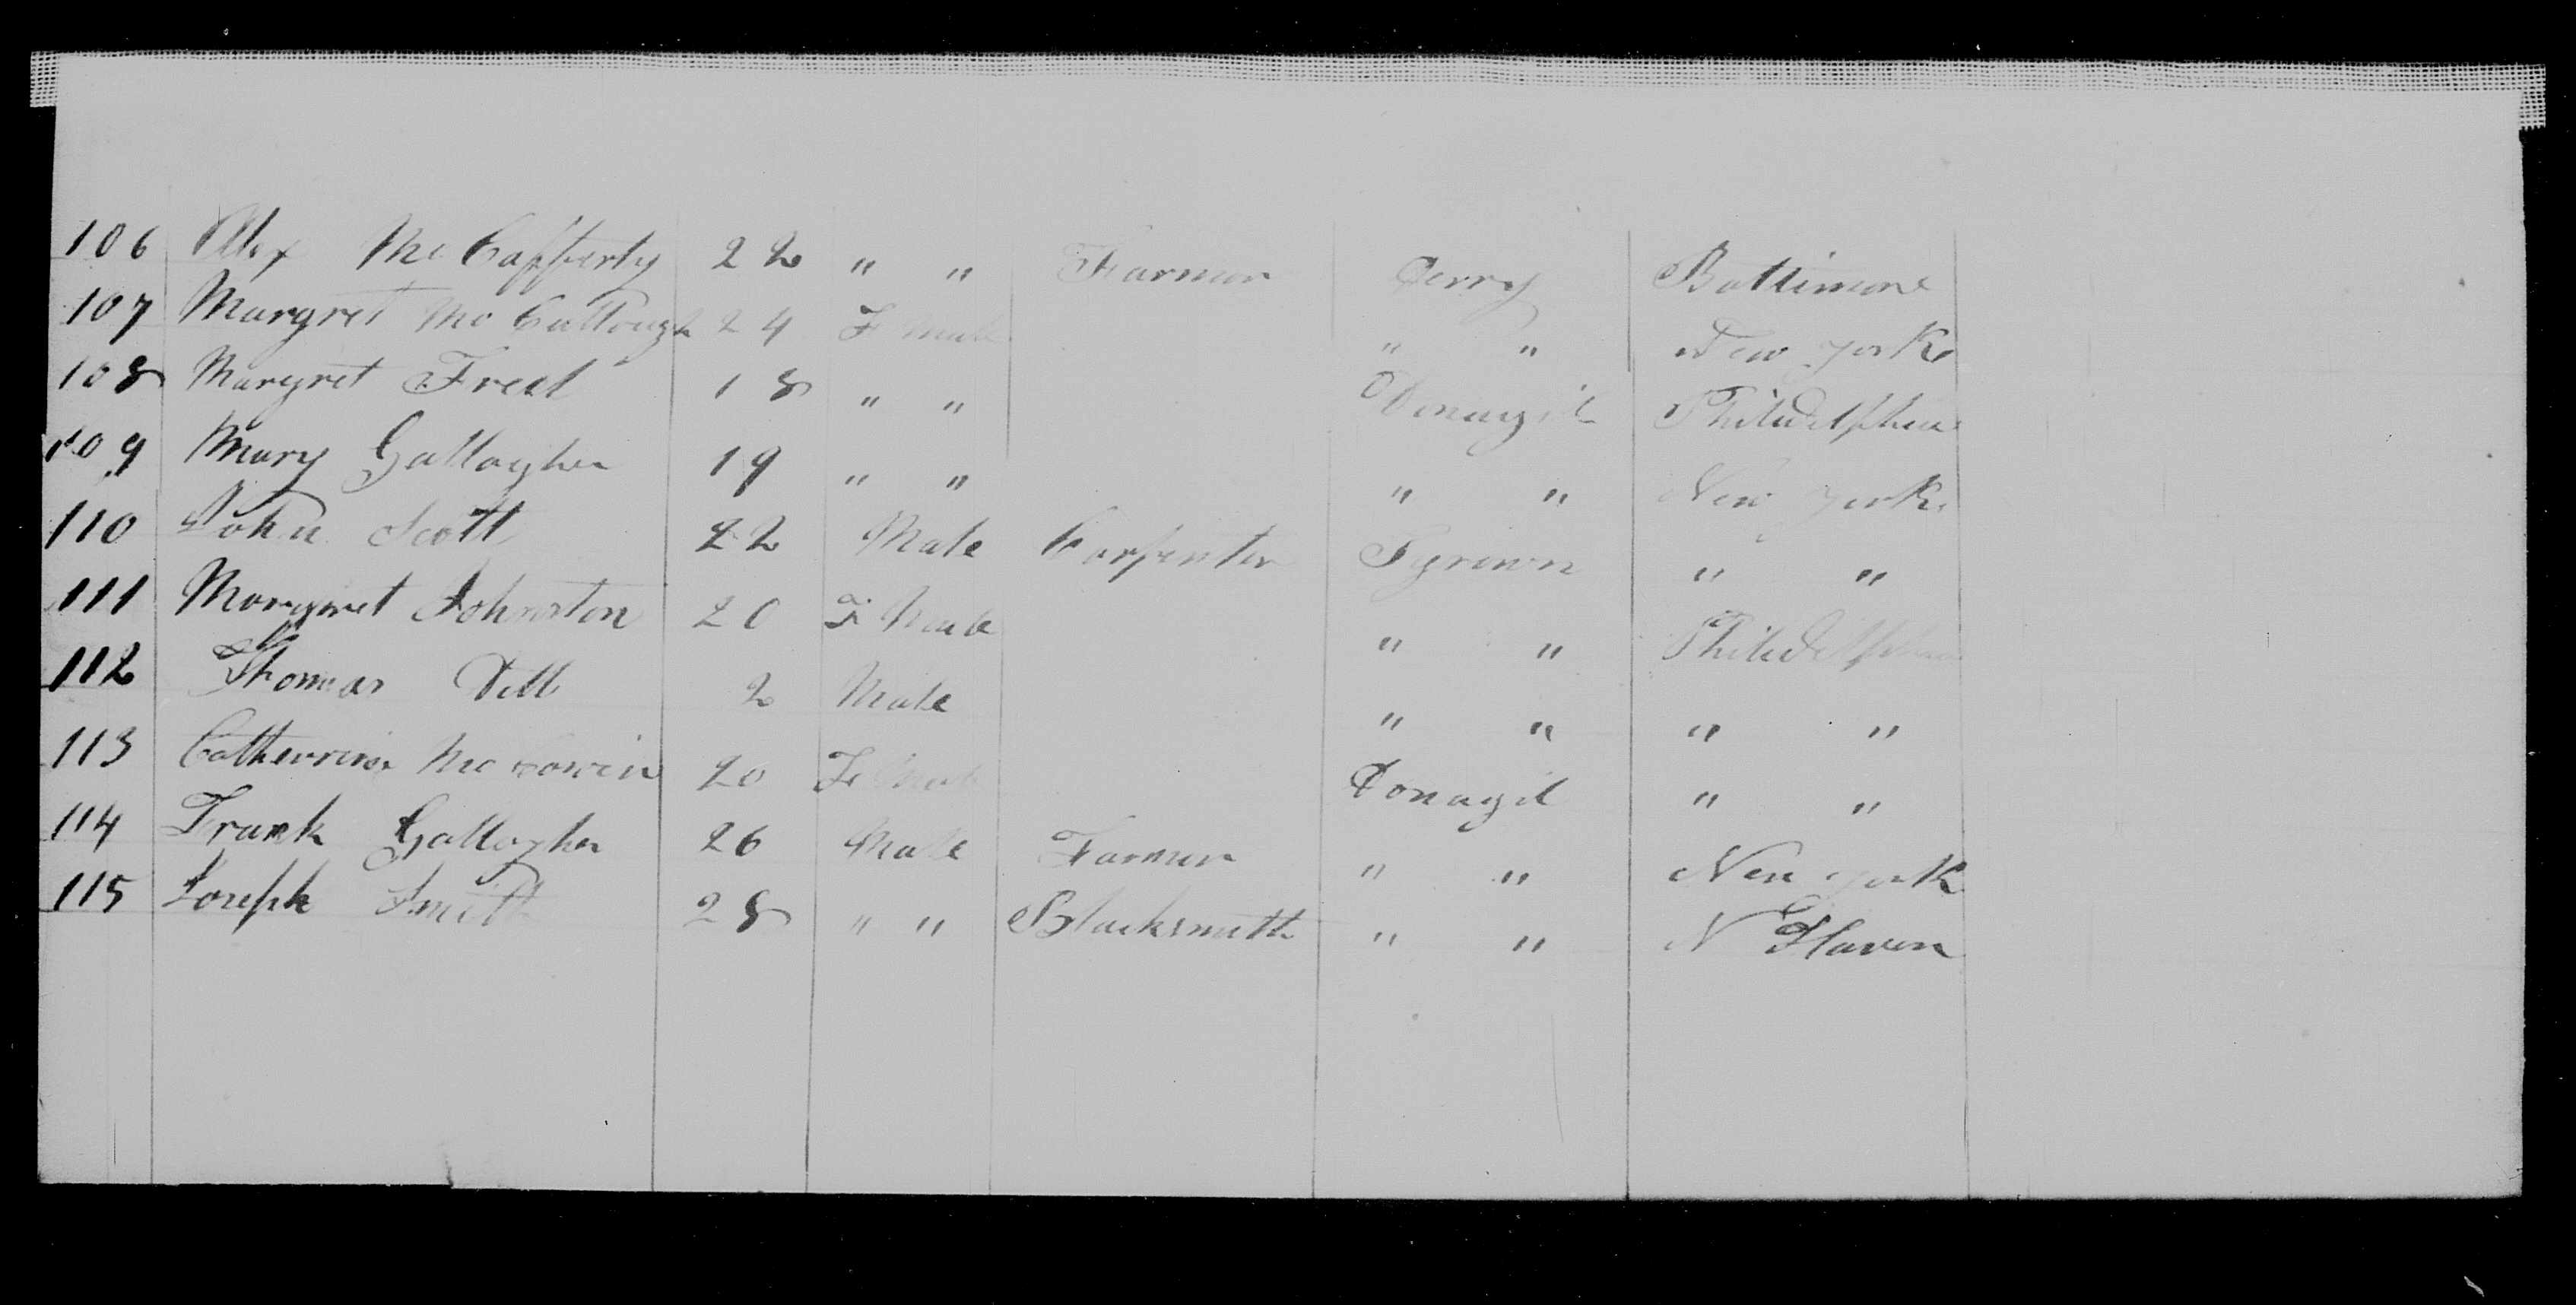 106 Alex Mc Cafferty 22 " " Farmer Derry Baltimore
107 Margret Mc Cullough 24 F male " " New York
108 Margret Freel 18 " " Donagil Philidelphia
109 Mary Gallagher 19 " " " " New York
110 John Scott 22 Male Carpenter Tyrown " "
111 Margret Johnston 20 F Male " " Philidelphia
112 Thomas Do 2 Male " " " "
113 Catherrine Mc 20 Fe Male Donagil " "
114 Frank Gallagher 26 Male Farmer " " New York
115 Joseph Smith 28 " " Blacksmith " " N Haven